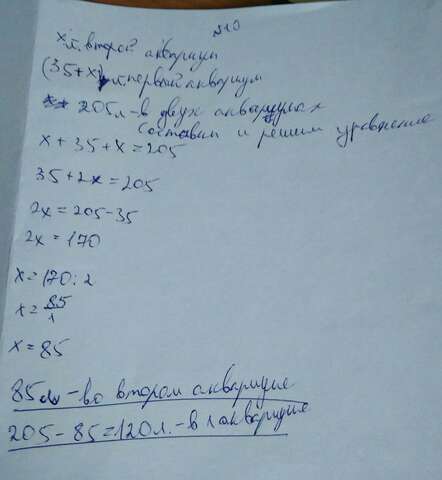 №10
х л. второй аквариум
(35+х) л. первый аквариум
205 л - в двух аквариумах
Составим и решим уравнение
х + 35 + х = 205
35 + 2х = 205
2х = 205 - 35
2х = 170
х = 170 : 2
х = 85/1
х = 85
85 - во втором аквариуме
205 - 85 = 120 л. - в 1 аквариуме